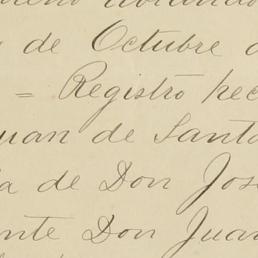 de Octubre d
= Registro hec
uan de Santa
a de Don José
nte Don Juan